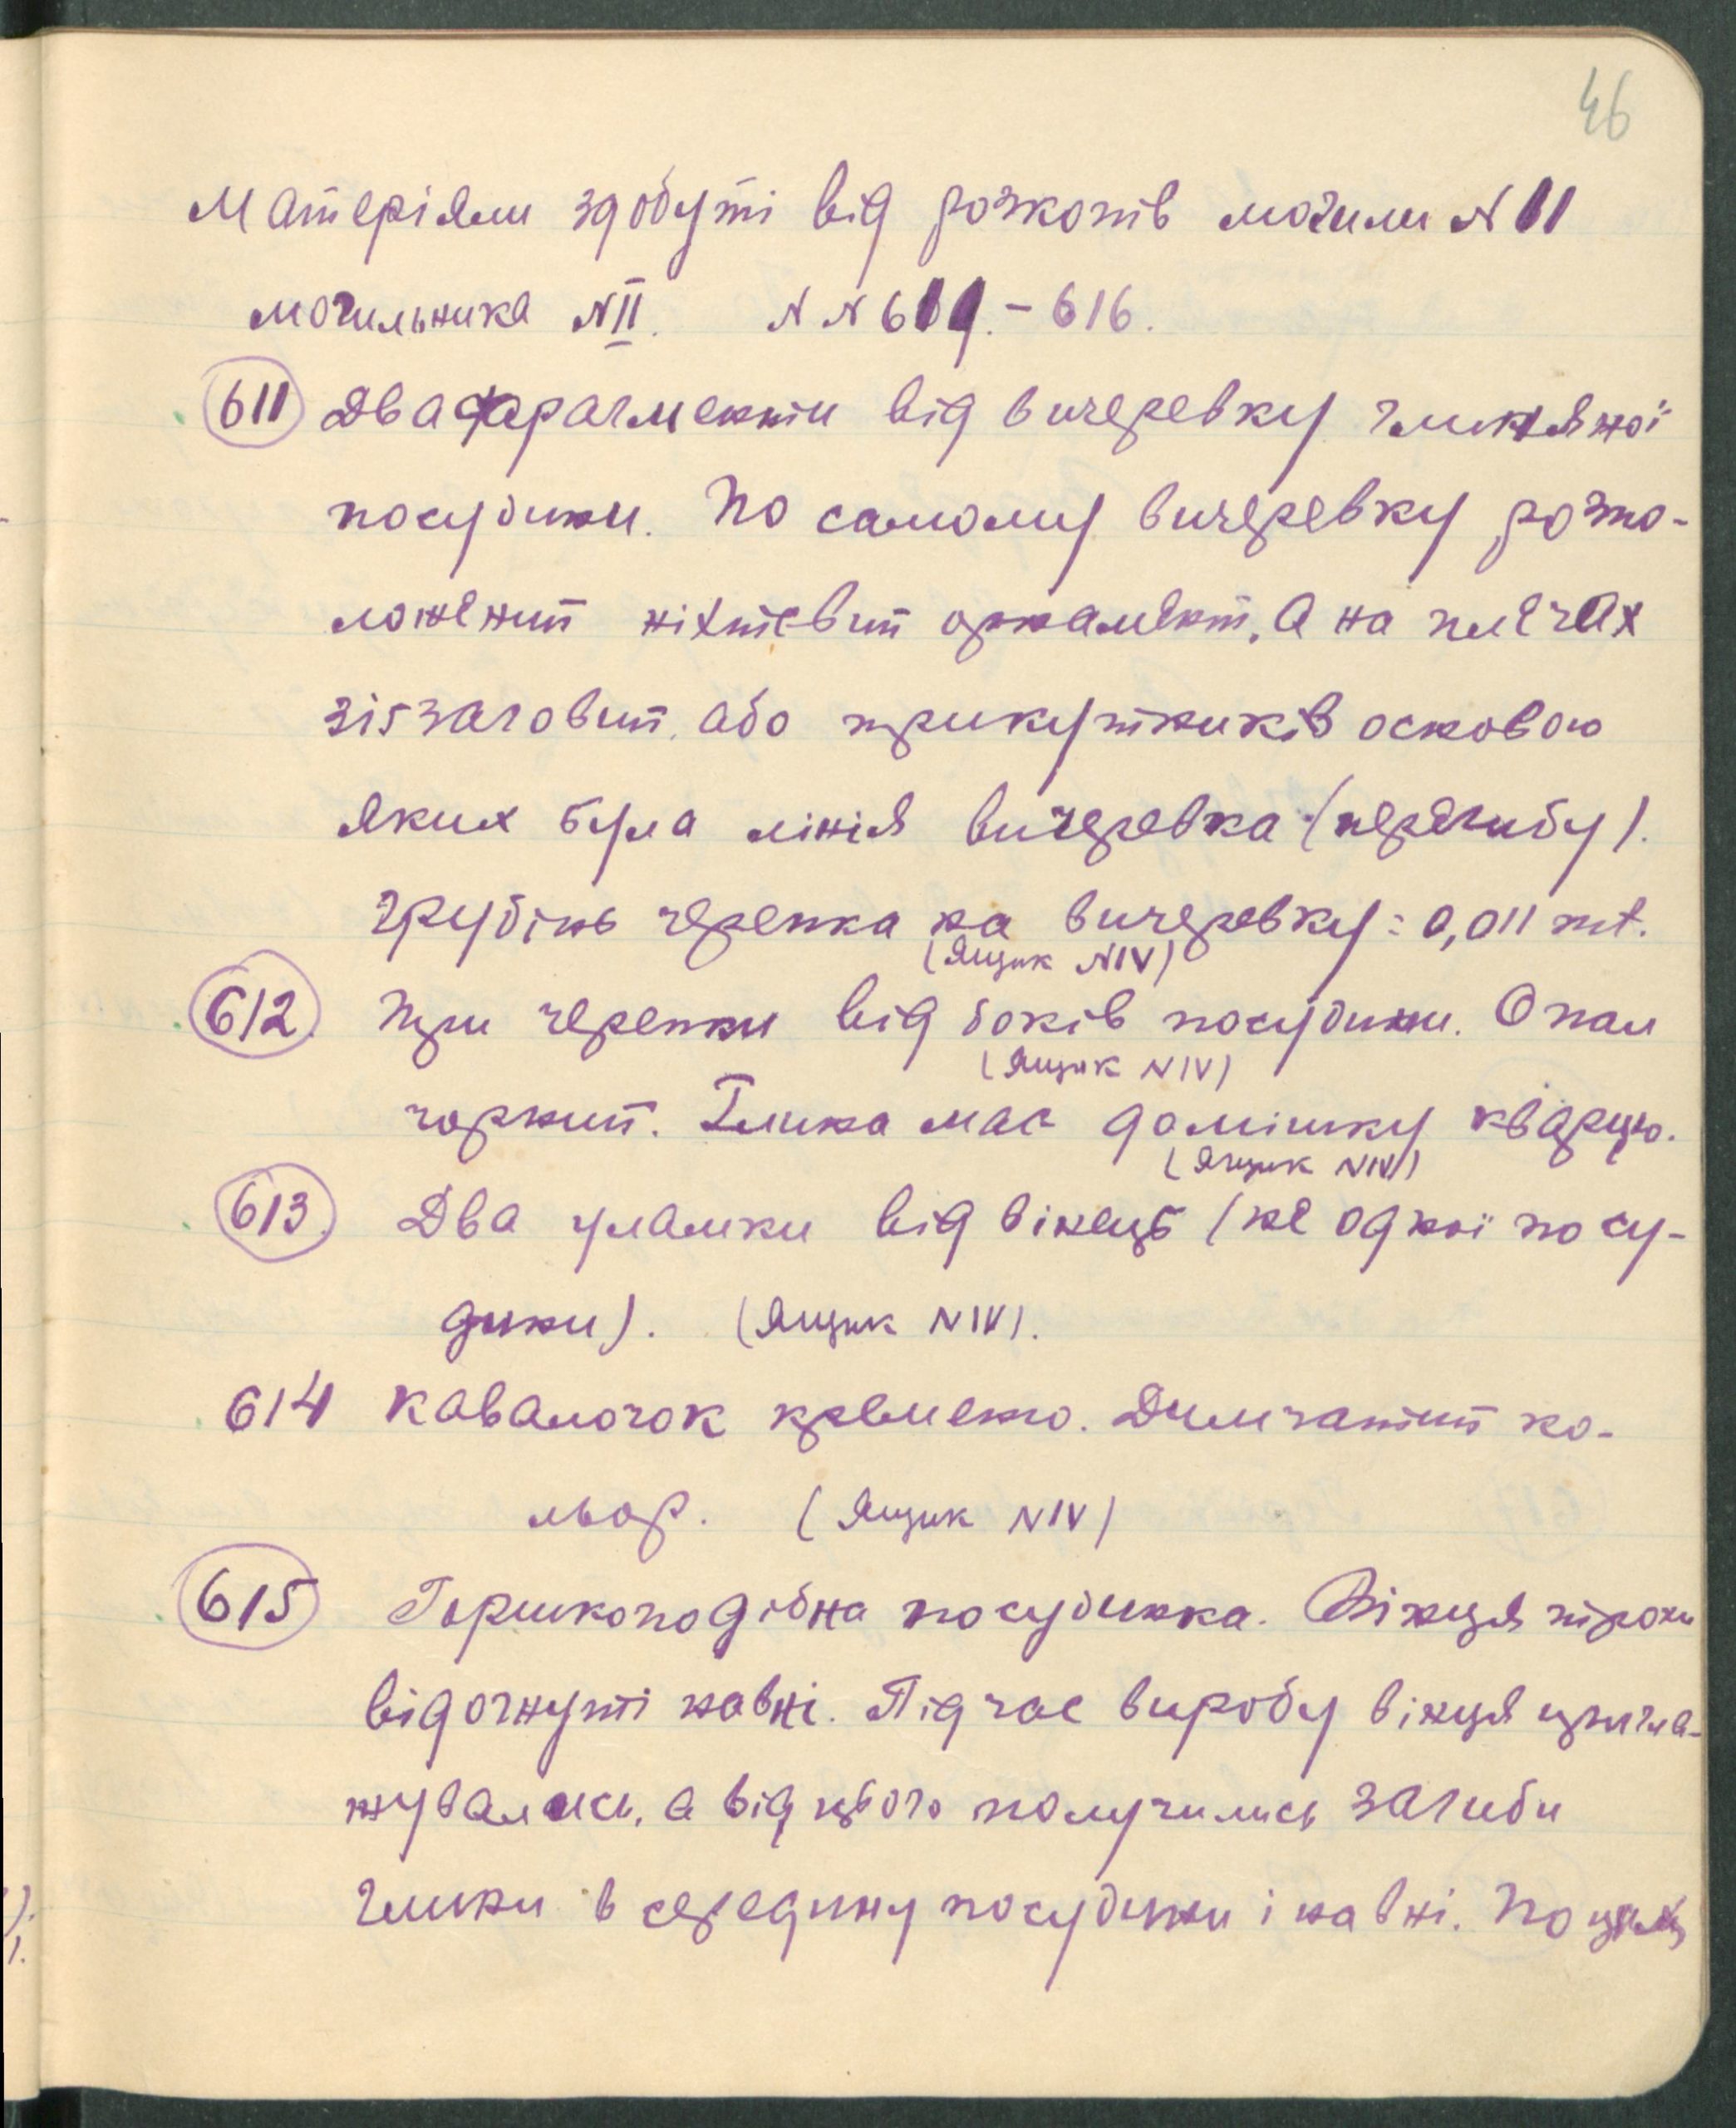 46
Матеріяли здобуті від розкопів могили N 11
могильника N II. N N 611. – 616.
611 Два фрагменти від вичеревку глиняної
посудини. По самому вичеревку розпо-
ложений нігтевий орнамент, а на плечах
зігзаговий, або трикутників основою
яких була лінія вичеревка (перегибу).
Грубінь черепка на вичеревку = 0,011 mt.
(Ящик N IV)
612. Три черепки від боків посудини. Опал
(Ящик N IV)
чорний. Глина має домішку кварцю.
(Ящик N IV)
613. Два уламки від вінець (не одної посу-
дини). (Ящик N IV).
614 Кавалочок кременю. Димчатий ко-
льор. (Ящик N IV)
615 Горшкоподібна посудинка. Вінця трохи
відогнуті навні. Під час виробу вінця
жувались, а від цього получились загиби
глини в середину посудини і навні. По